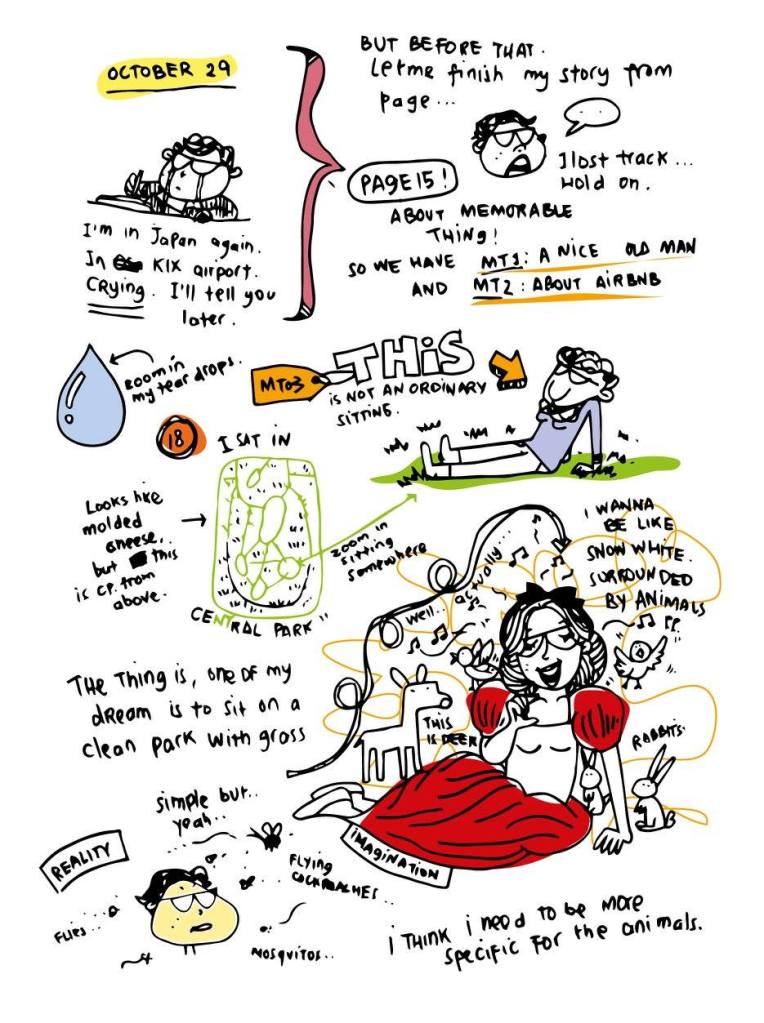 OCTOBER 29
I'm in Japan again.
In KIX airport.
Crying. I'll tell you
later.
BUT BEFORE THAT.
Let me finish my story from
page...
I lost track...
Hold on.
PAGE 15!
ABOUT MEMORABLE
THING!
SO WE HAVE MT1: A NICE OLD MAN
AND MT2: ABOUT AIRBNB
zoom in
my tear drops.
MT03
THIS
IS NOT AN ORDINARY
SITTING.
18
I SAT IN
Looks like
molded
cheese..
but this
is CP. from
above.
CENTRAL PARK"
zoom in
sitting
somewhere
well.. actually..
I WANNA
BE LIKE
SNOW WHITE.
SURROUNDED
BY ANIMALS
THIS
IS DEER
RABBITS.
The thing is, one of my
dream is to sit on a
clean park with grass
simple but..
yeah..
IMAGINATION
REALITY
FLYING
COCKROACHES...
FLIES...
MOSQUITOS..
I THINK I need to be more
specific for the animals.